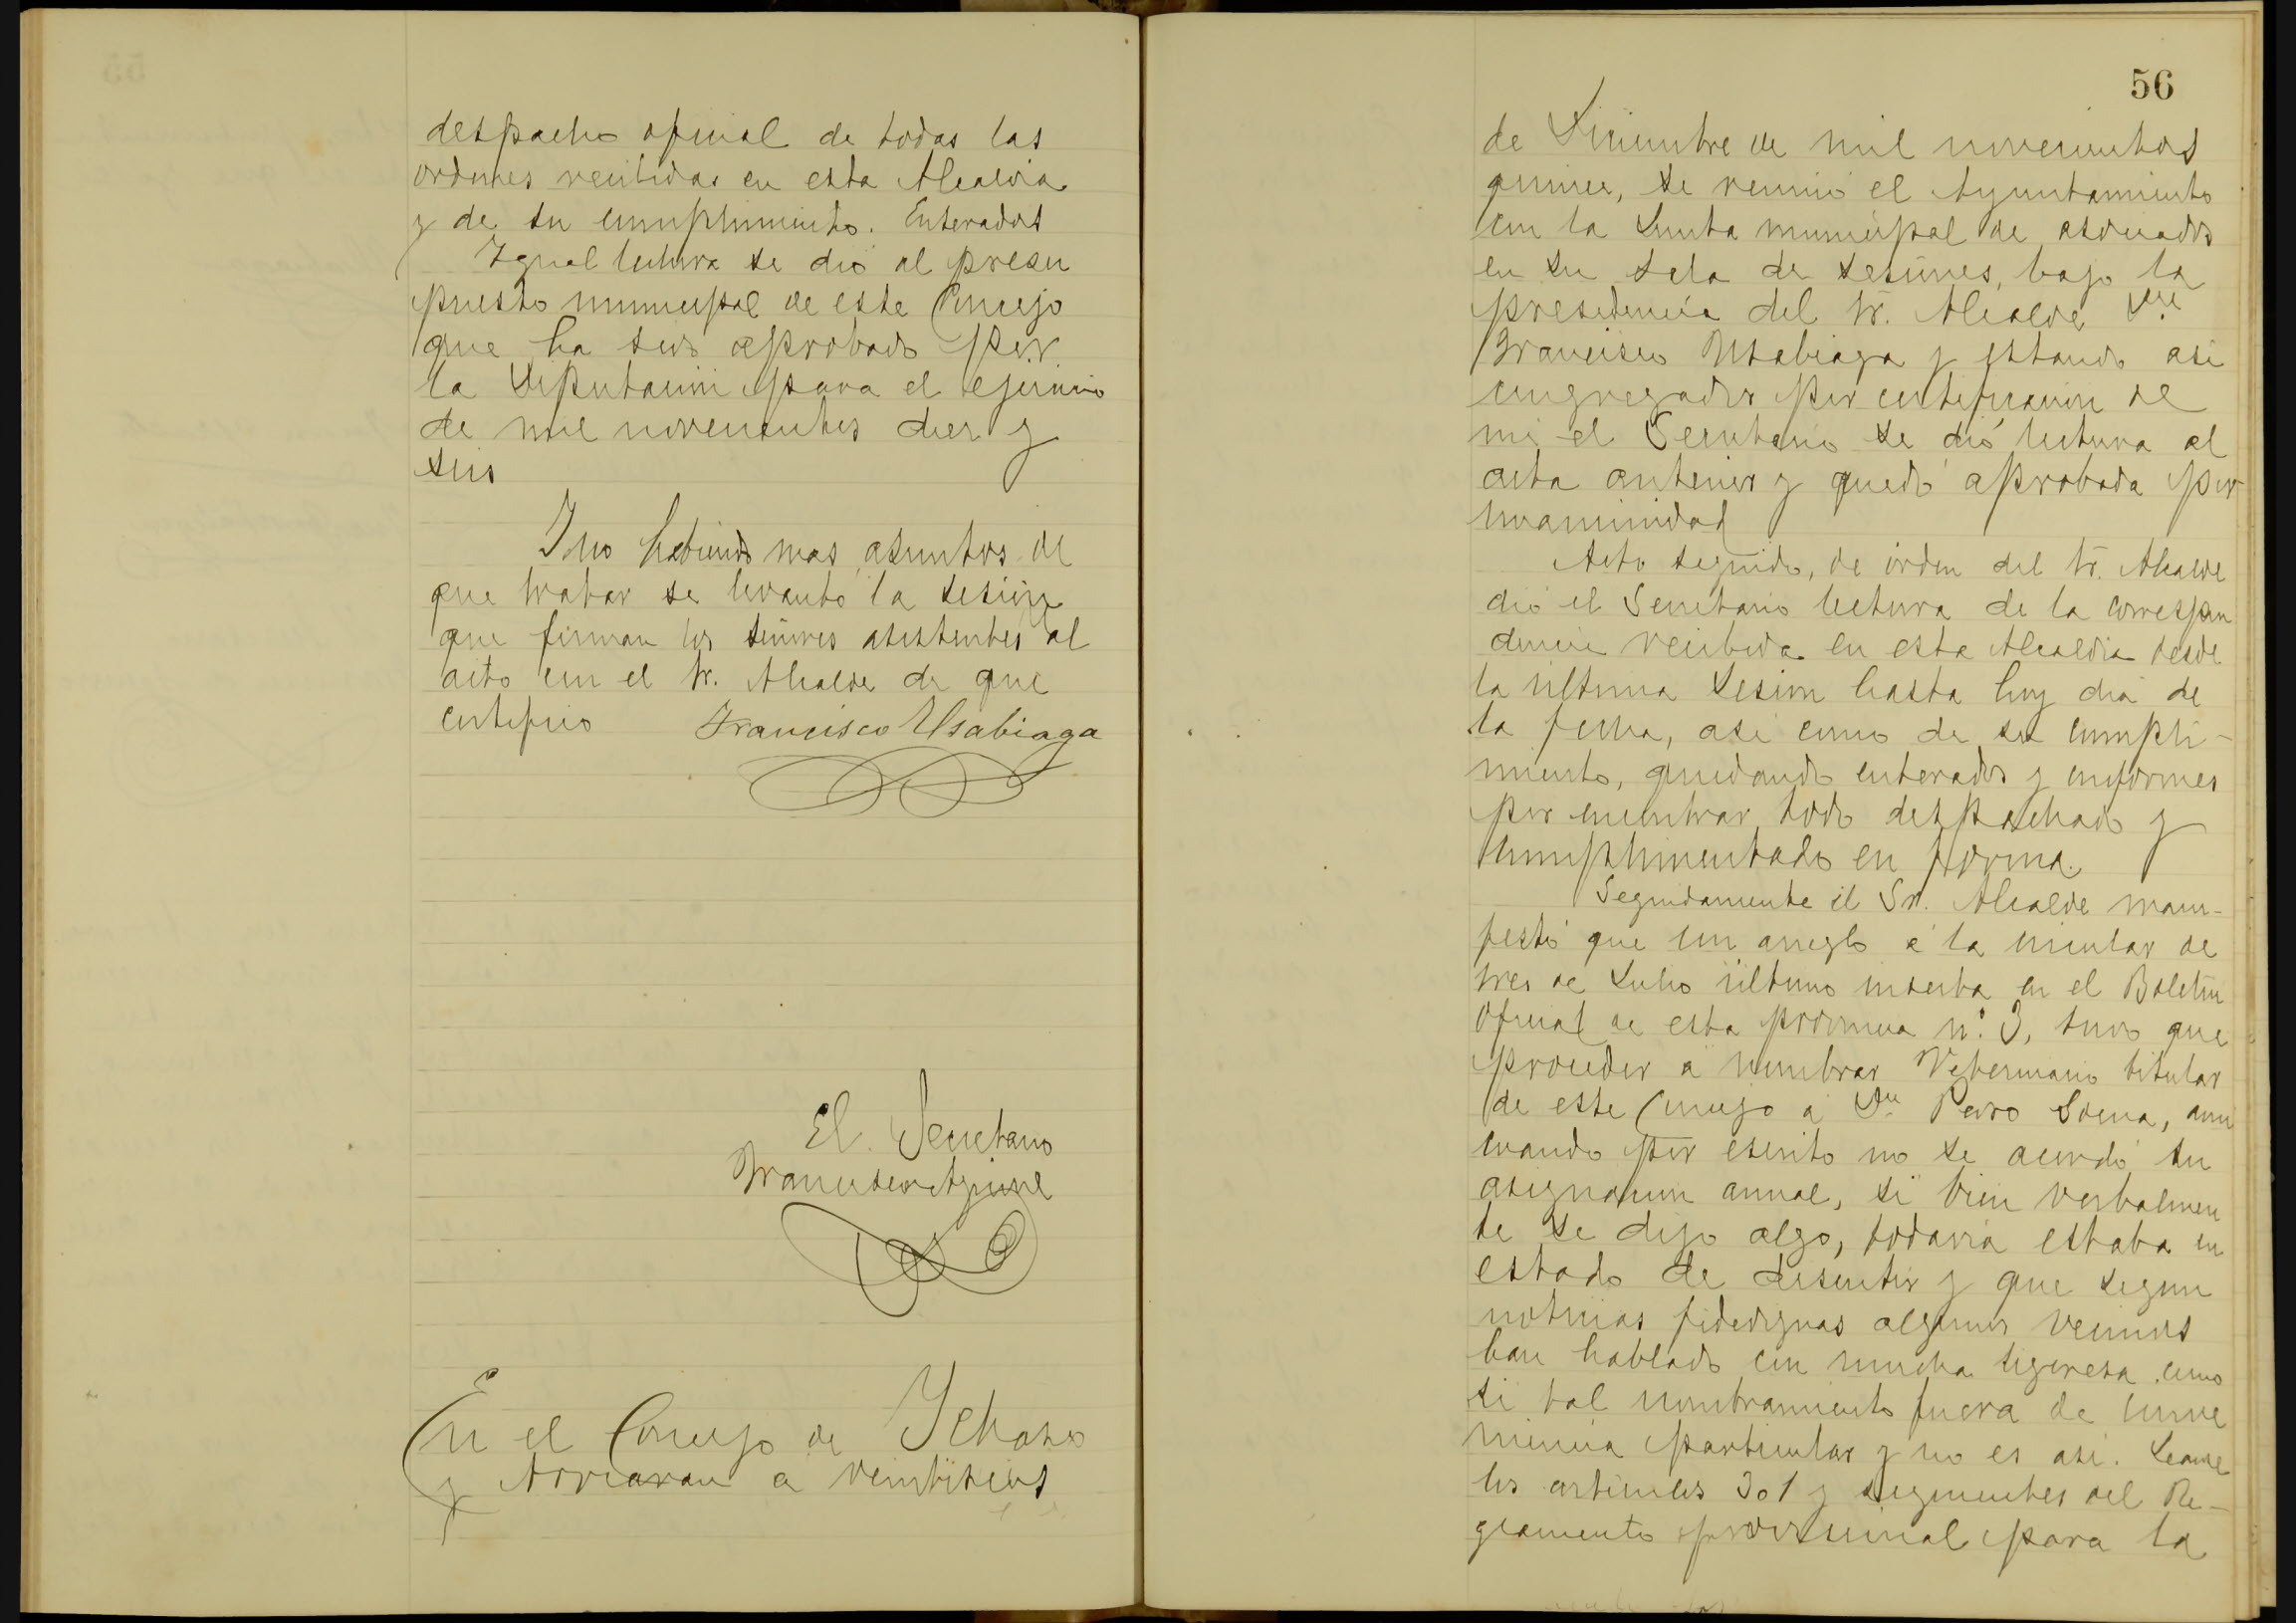 despacho oficial de todas las
ordenes recibidas en esta Alcaldia
y de su cumplimiento. Enterados
Igual lectura se dió al presu
puesto municipal de este Concejo
que ha sido aprobado por
la Diputación para el ejercicio
de mil novecientos diez y
seis
Y no habiendo mas asuntos de
que tratar se levantó la sesión
que firman los señores asistentes al
acto con el Sr. Alcalde de que
certifico Francisco Usabiaga
El Secretario
Francisco Aguirre
En el Concejo de Ichaso
y Arriaran a veintiseis
56
de Diciembre de mil novecientos
quince, se reunió el Ayuntamiento
con la Junta municipal de asociados
en su sala de sesiones, bajo la
presidencia del Sr. Alcalde Dn
Francisco Usabiaga y estando asi
congregados por certificación de
mi el Secretario se dió lectura al
acta anterior y quedó aprobada por
unanimidad
Acto seguido, de órden del Sr. Alcalde
dió el Secretario lectura de la correspon
dencia recibida en esta Alcaldia desde
la última sesion hasta hoy dia de
la fecha, asi como de su cumpli-
miento, quedando enterados y conformes
por encontrar todo despachado y
cumplimentado en forma.
Seguidamente el Sr. Alcalde mani-
festó que con arreglo a la circular de
tres de Julio último inserta en el Boletin
oficial de esta provincia n.º 3, tuvo que
proceder a nombrar Veterinario titular
de este Concejo a Dn Pedro Soena, aun
cuando por escrito no se acordó su
asignacion anual, si bien verbalmen
te se dijo algo, todavia estaba en
estado de discutir y que segun
noticias fidedignas algunos vecinos
han hablado con mucha ligeresa como
si tal nombramiento fuera de conve
niencia particular y no es asi. Leanse
los articulos 301 y siguientes del Re-
glamento provisional para la